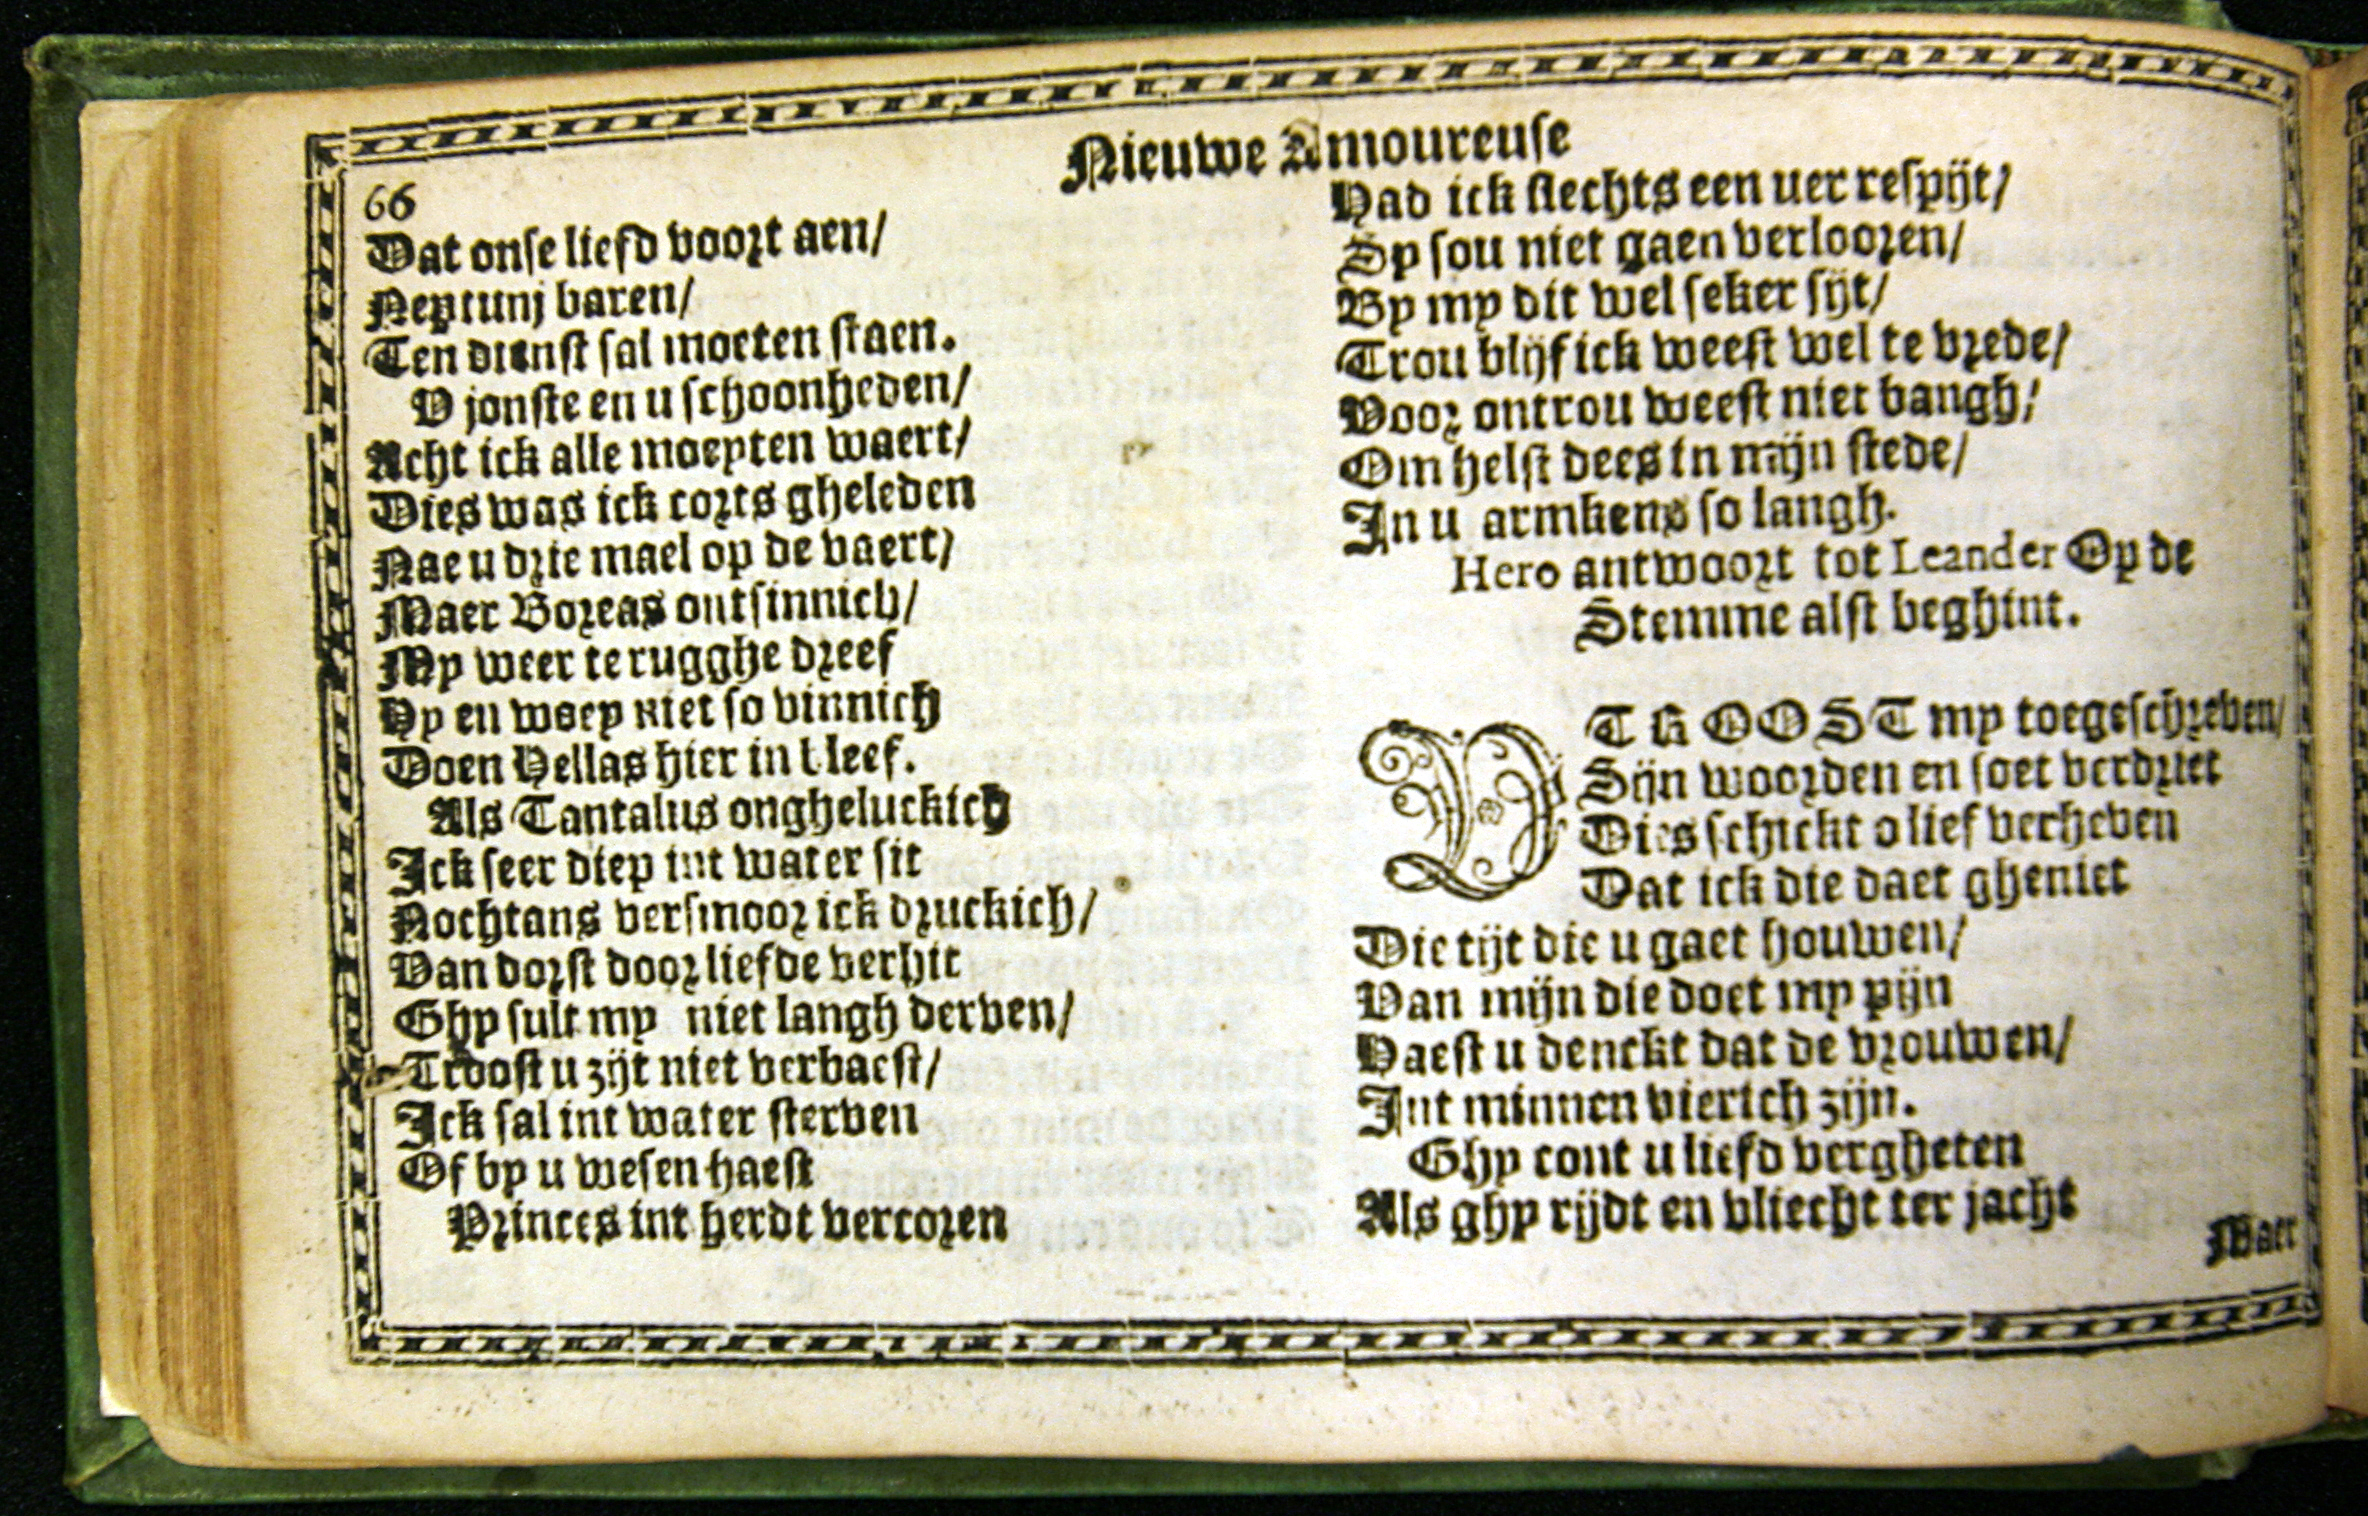 Nieuwe Amoureuse
66
Dat onse liefd voort aen/
Neptunj baren/
Ten dienst sal moeten staen.
V jonste en u schoonheden/
Acht ick alle moeyten waert/
Dies was ick corts gheleden
Nae u drie mael op de vaert/
Maer Boreas ontsinnich/
My weer te rugghe dreef
Hy en woey niet so vinnich
Doen Hellas hier in bleef.
Als Tantalus ongheluckich
Ick seer diep int water sit
Nochtans versmoor ick druckich/
Van dorst door liefde verhit
Ghy sult my niet langh derven/
Troost u zijt niet verbaest/
Ick sal int water sterven
Of by u wesen haest
Princes int herdt vercoren
Had ick slechts een uer respijt/
Sy sou niet gaen verlooren/
By my dit wel seker sijt/
Trou blijf ick weest wel te vrede/
Voor ontrou weest niet bangh/
Om helst dees in mijn stede/
In u armkens so langh.
Hero antwoort tot Leander Op de
Stemme alst beghint.
V TROOST my toegeschreven/
Sijn woorden en soet verdriet
Dies schickt o lief verheven
Dat ick die daet gheniet
Die tijt die u gaet houwen/
Van mijn die doet my pijn
Haest u denckt dat de vrouwen/
Int minnen vierich zijn.
Ghy cont u liefd vergheten
Als ghy rijdt en vliecht ter jacht
Maer